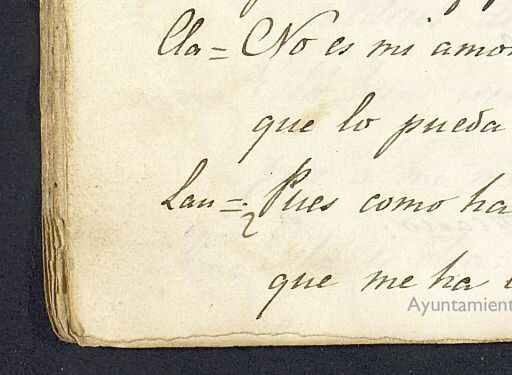 Cla = No es mi amor
que lo pueda
Lau = Pues como ha
que me ha
Ayuntamient